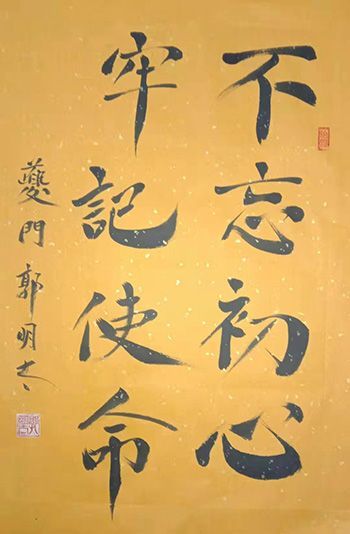 不忘初心
牢记使命
夔門郭明